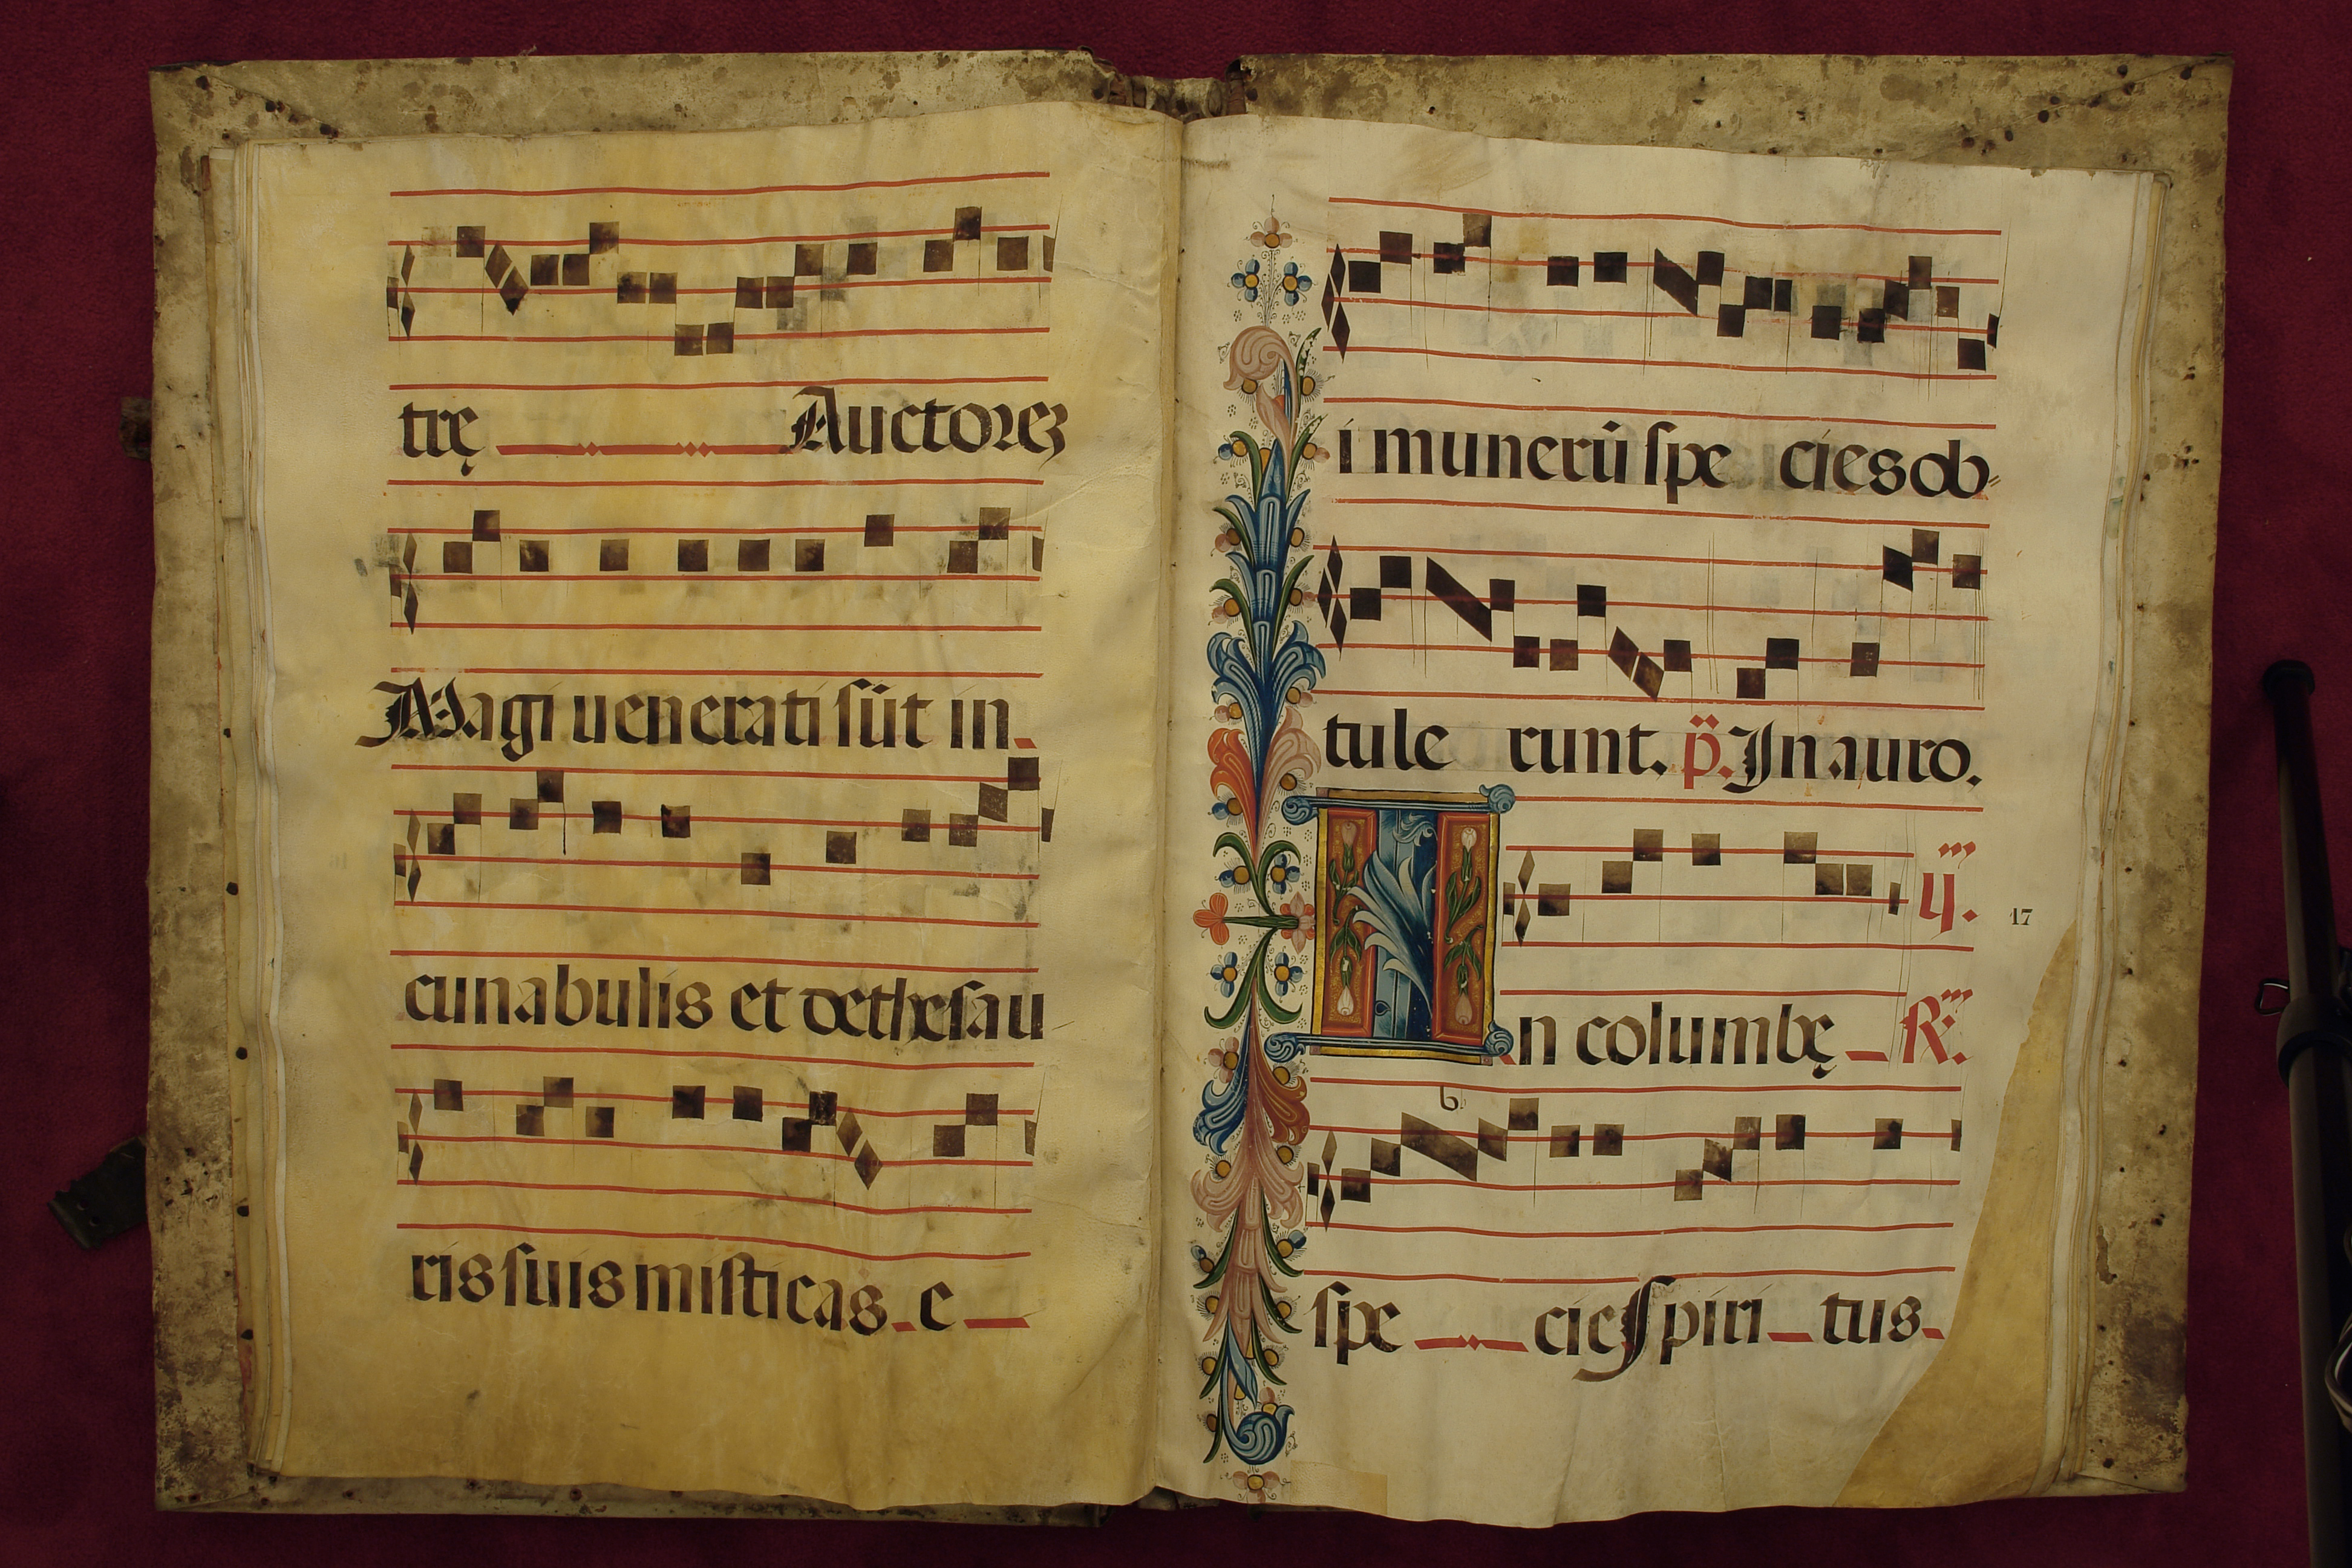 trę Auctorez
Magi uenerati sũt in
cunabulis et dethesau
ris suis misticas e
i munerũ spe cies ob-
tule runt. p̈. In auro.
ij.
17
In columbę R̃.
spe cie spiri tus